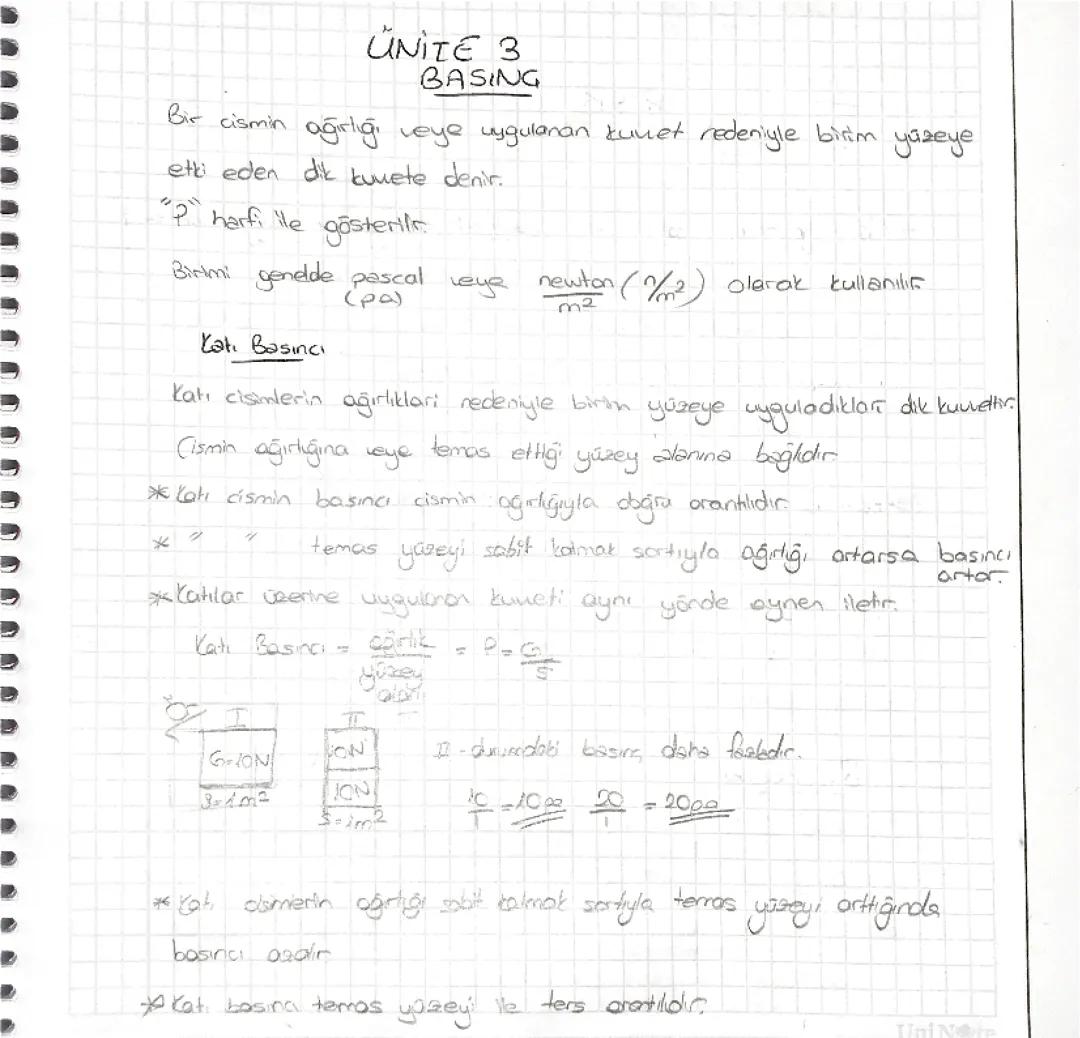 ÜNİTE 3
BASINÇ
Bir cismin ağırlığı veya uygulanan kuvvet nedeniyle birim yüzeye
etki eden dik kuvvete denir.
"P" harfi ile gösterilir.
Birimi genelde pascal veya newton/m² (N/m²) olarak kullanılır
(pa)
Katı Basıncı
Katı cisimlerin ağırlıkları nedeniyle birim yüzeye uyguladıkları dik kuvvettir.
Cismin ağırlığına veya temas ettiği yüzey alanına bağlıdır
* Katı cismin basıncı cismin ağırlığıyla doğru orantılıdır.
* " " temas yüzeyi sabit kalmak şartıyla ağırlığı artarsa basıncı
artar.
* Katılar üzerine uygulanan kuvveti aynı yönde aynen iletir.
Katı Basıncı = ağırlık / yüzey alanı = P = G/S
Ör/ I II
G=10N 10N II - durumdaki basınç daha fazladır.
10N
S=1m² S=1m² 10/1 = 10pa 20/1 = 20pa
* Katı cisimlerin ağırlığı sabit kalmak şartıyla temas yüzeyi arttığında
basıncı azalır
* Katı basıncı temas yüzeyi ile ters orantılıdır.
UniNote